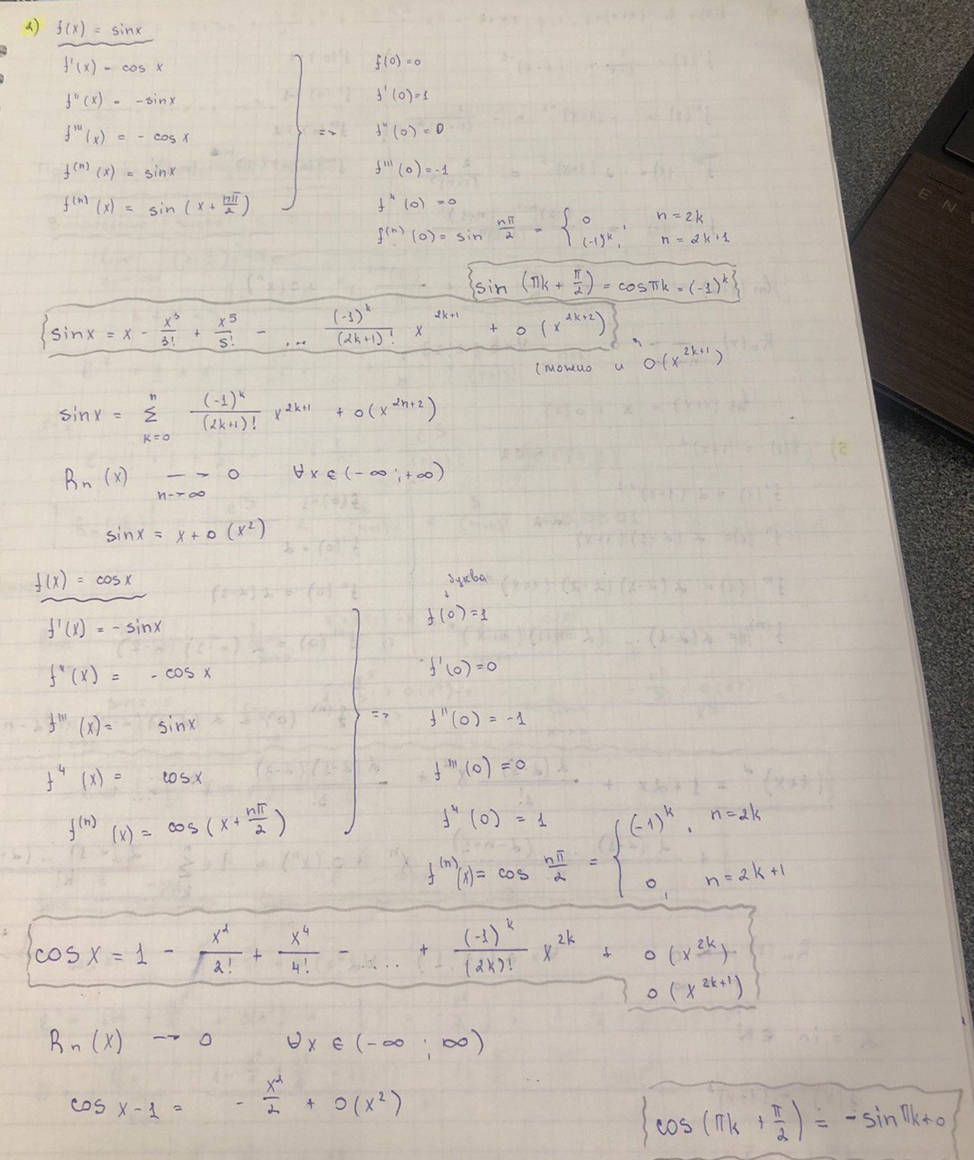 2) f(x) = sinx
f'(x) = cos x
f''(x) = -sinx
f'''(x) = - cos x
f⁽ⁿ⁾(x) = sinx
f⁽ⁿ⁾(x) = sin (x + nπ/2)
=>
f(0)=0
f'(0)=1
f''(0) = 0
f'''(0)=-1
f⁴(0) =0
f⁽ⁿ⁾(0)= sin nπ/2 = { 0, n=2k
(-1)ᵏ, n=2k+1
sin (πk + π/2) = cosπk = (-1)ᵏ
sinx = x - x³/3! + x⁵/5! - ... (-1)ᵏ/(2k+1)! x²ᵏ⁺¹ + o (x²ᵏ⁺²)
(можно и o(x²ᵏ⁺¹)
sinx = Σ k=0 n (-1)ᵏ/(2k+1)! x²ᵏ⁺¹ + o(x²ⁿ⁺²)
Rn (x) → 0 n→∞ ∀x ∈ (-∞ ; +∞)
sinx = x + o (x²)
f(x) = cosx
f'(x) = - sinx
f''(x) = - cos x
f''' (x) = sinx
f⁴ (x) = cosx
f⁽ⁿ⁾ (x) = cos (x + nπ/2)
=>
буква
f(0)=1
f'(0)=0
f''(0) = -1
f'''(0) =0
f⁴(0) = 1
f⁽ⁿ⁾(x) = cos nπ/2 = { (-1)ᵏ, n=2k
0, n=2k+1
cos x = 1 - x²/2! + x⁴/4! - .... + (-1)ᵏ/(2k)! x²ᵏ + o (x²ᵏ)
o (x²ᵏ⁺¹)
Rn (x) → 0 ∀x ∈ (-∞ ; ∞)
cos x-1 = - x²/2 + o(x²)
cos (πk + π/2) = -sin πk+0